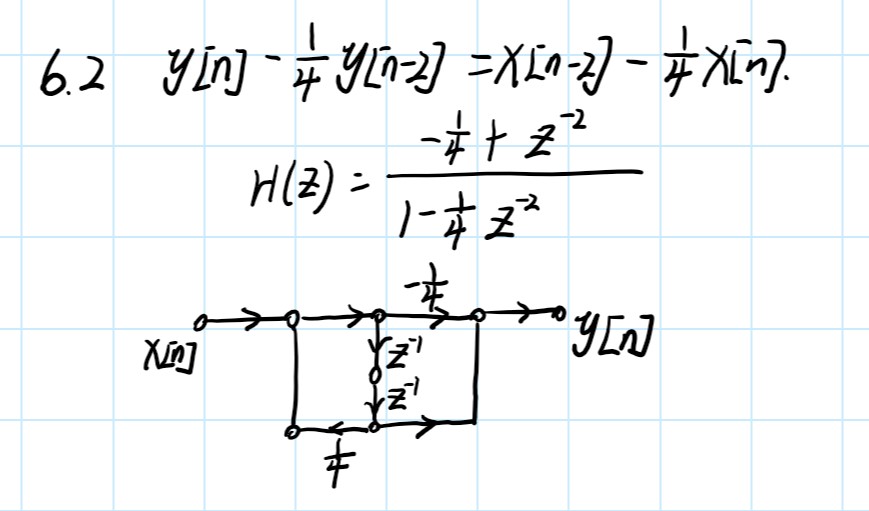 6.2 y[n] - 1/4 y[n-2] = x[n-2] - 1/4 x[n].
H(z) = (-1/4 + z^-2) / (1 - 1/4 z^-2)
-1/4
x[n] y[n]
z^-1
z^-1
1/4